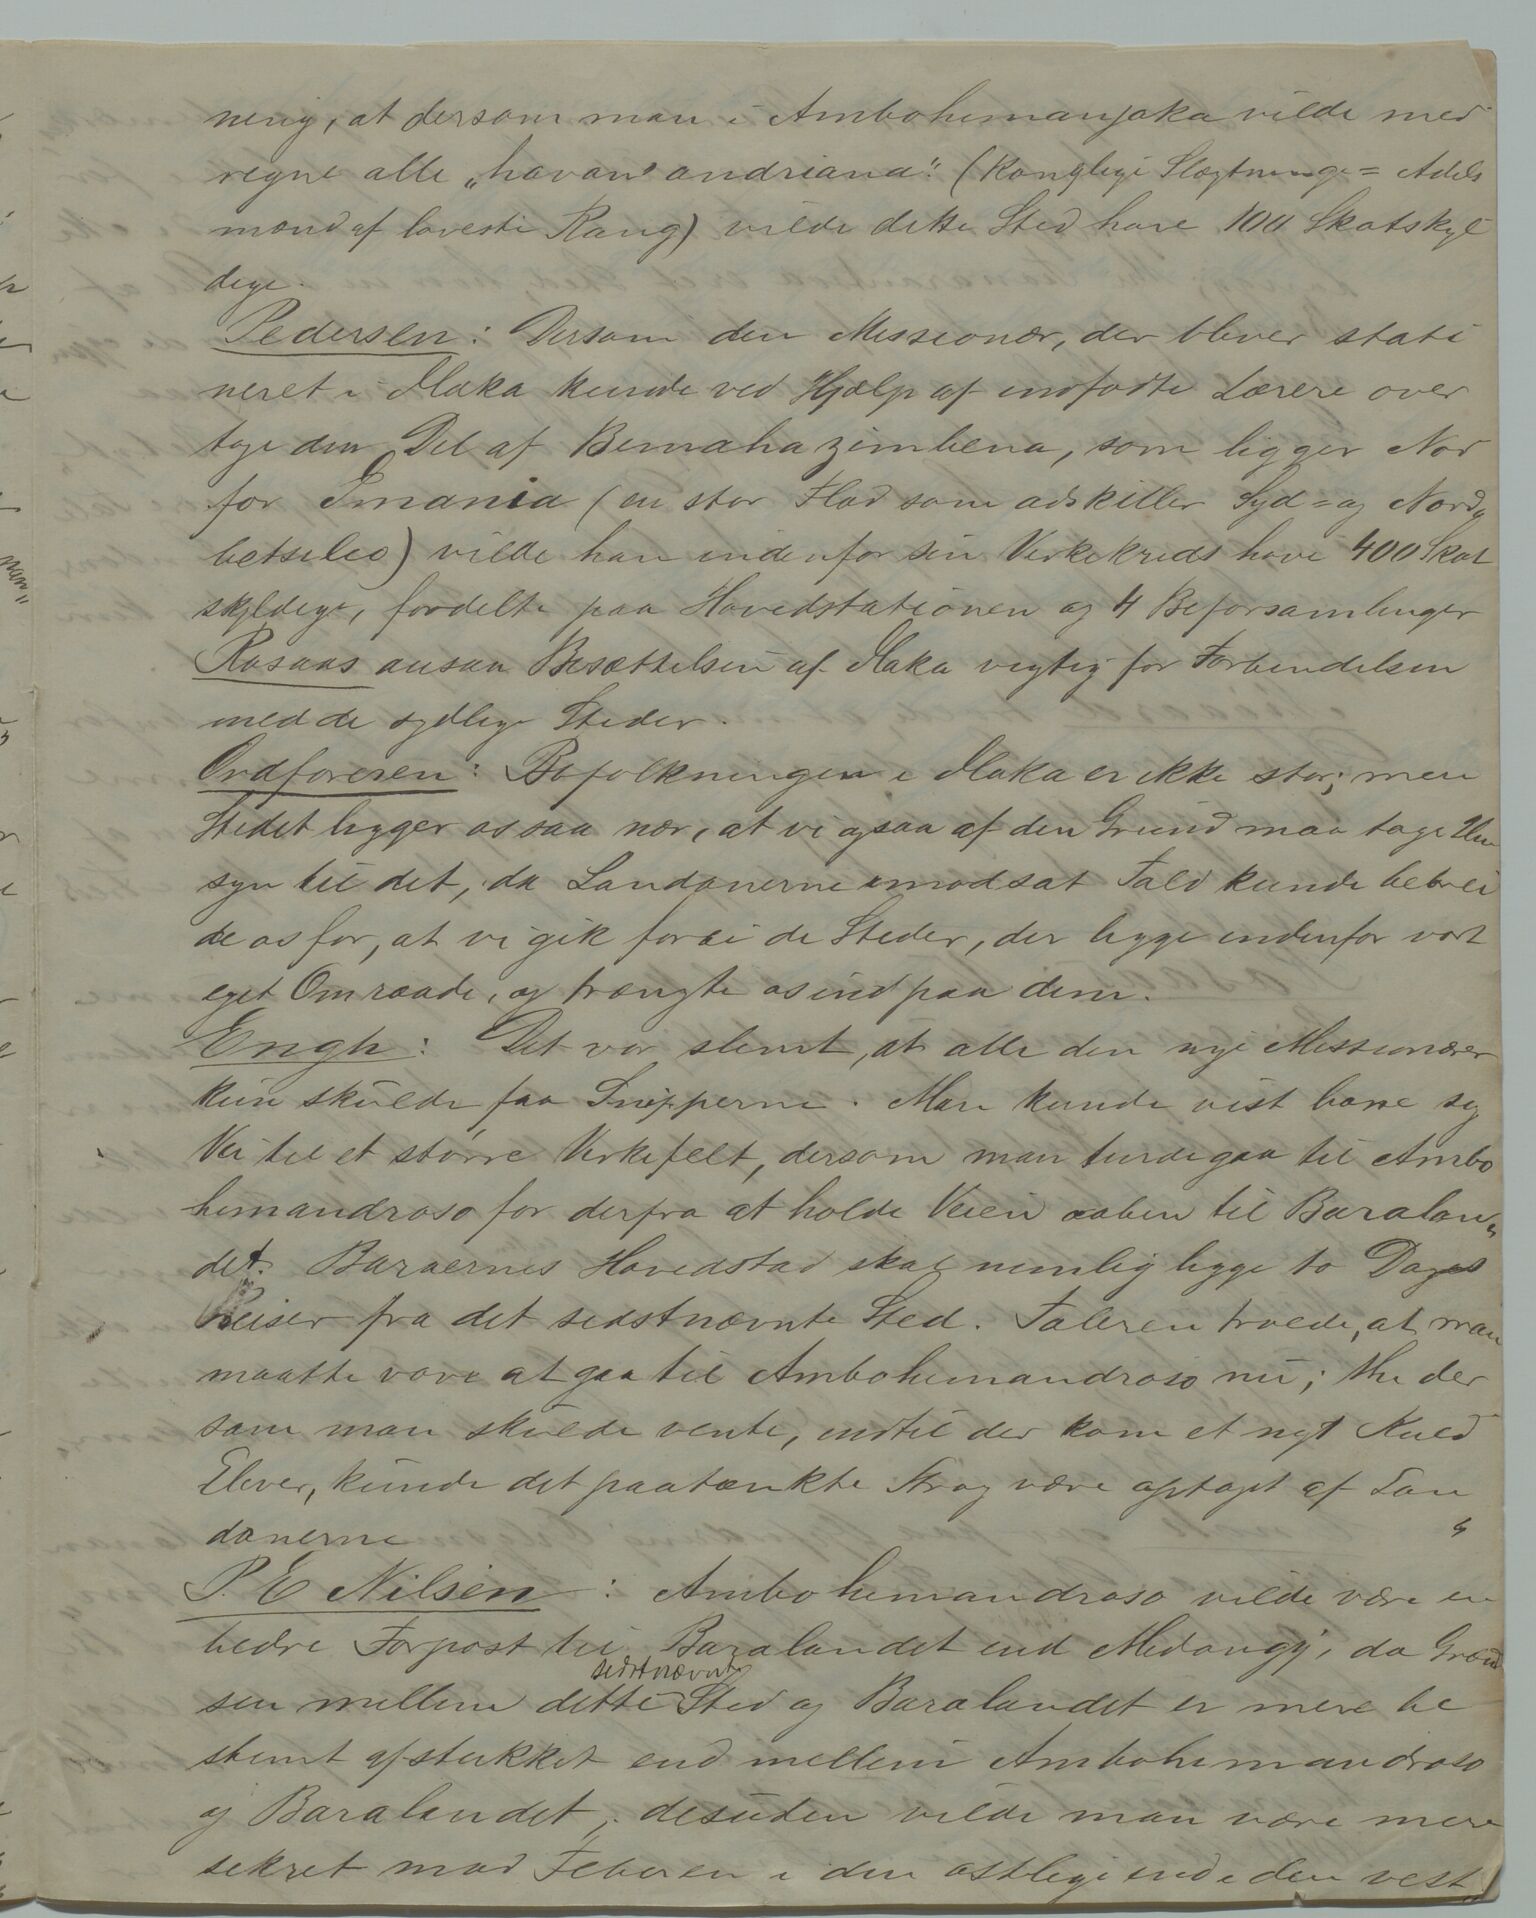 nerig, at dersom man i Ambohimanjaka vilde med
regne alle „havan'andriana". (kongelige Slægtninge = Adels
mænd af laveste Rang) vilde dette Sted have 100 Skatskyl
dige.
Pedersen: Dersom den Missionær, der bliver stati
neret i Ilaka kunde ved Hjælp af indfødte Lærere over
tage den Del af Bemahazimbena, som ligger Nord
for Imania (en stor Flod som adskiller Syd= og Nord
betsileo) vilde han indenfor sin Virkekreds have 400 Skat
skyldige, fordelte paa Hovedstationen og 4 Biforsamlinger
Rosaas ansaa Besættelsen af Ilaka vigtig for Forbindelsen
med de sydlige Steder.
Ordføreren: Befolkningen i Ilaka er ikke stor; men
Stedet ligger os saa nær, at vi ogsaa af den Grund maa tage Hen
syn til det, da Londonerne i modsat Fald kunde bebrei
de os for, at vi gik forbi de Steder, der ligge indenfor vort
eget Omraade, og trængte os ind paa dem.
Engh: Det var slemt, at alle den nye Missionærer
kun skulde faa Snipperne. Man kunde vist bane sig
Vei til et større Virkefelt, dersom man turde gaa til Ambo
himandroso for derfra at holde Veien aaben til Baralan
det. Baraernes Hovedstad skal nemlig ligge to Dages
Reiser fra det sidstnævnte Sted. Taleren troede, at man
maatte vove at gaa til Ambohimandroso nu; thi der
som man skulde vente, indtil der kom et nyt Kuld
Elever, kunde det paatænkte Strøg være optaget af Lon
donerne
P. E Nilsen: Ambohimandroso vilde være en
bedre Forpost til Baralandet end Midongy, da Græn
sen mellem dette sidstnævnte Sted og Baralandet er mere be
stemt afstukket end mellem Ambohimandroso
og Baralandet; desuden vilde man være mere
sikret mod Feberen i den østlige end i den vest